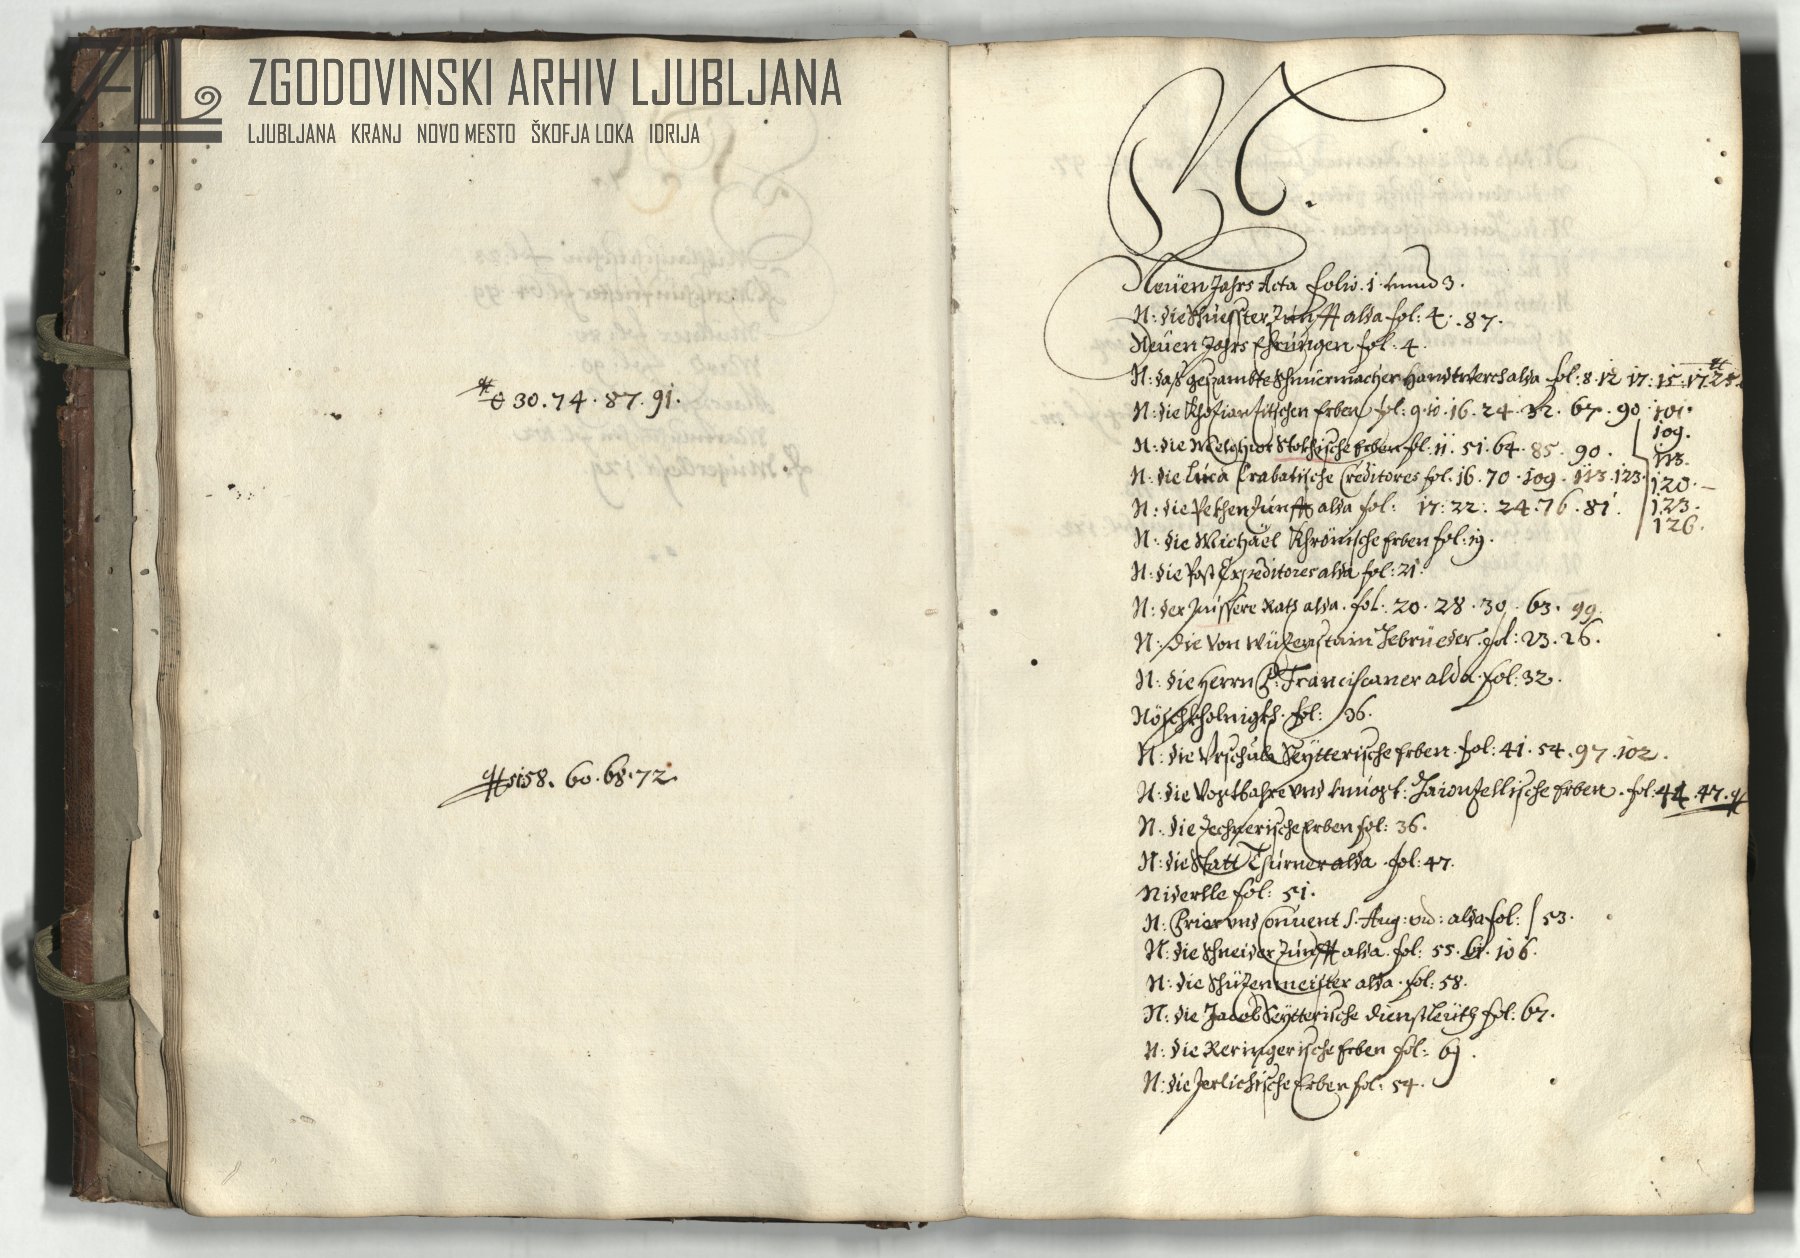 ZGODOVINSKI ARHIV LJUBLJANA
LJUBLJANA KRANJ NOVO MESTO ŠKOFJA LOKA IDRIJA
30. 74. 87. 91.
58. 60. 68. 72.
N.
Neüen Jahrs Acta folio. 1. vnnd 3.
N: die Schuesster Zunfft alda fol: 4. 87.
Neüen Jahrs Ehrungen fol: 4.
N: daß gesambte Schnürmacher Handtwerch alda fol: 8. 12. 17. 15. 17. 25.
N: die Erben fol: 9. 10. 16. 24. 32. 67. 90. 101.
109.
N: die Melchior Erben fol. 11. 51. 64. 85. 90.
113.
N: die Luca Crabatische Creditores fol. 16. 70. 109. 113. 123.
120.
N: die Pekhen Zunfft alda fol: 17. 22. 24. 76. 81.
123.
126.
N: die Michael Khrönische Erben fol: 19.
N: die Post Expeditores alda fol: 21.
N: der Äussere Rath alda. fol. 20. 28. 30. 63. 99.
N: die von Gebrüeder. fol: 23. 26.
N: die Herrn P: Franciscaner alda. fol: 32.
fol: 36.
N: die Vrschula Seÿtterische Erben. fol: 41. 54. 97. 102.
N: die vnd Erben. fol: 44. 47.
N: die Erben fol: 36.
N: die Statt Thurner alda. fol: 47.
Niderlle fol: 51.
N: Prior vnd Conuent S. Aug: ord: alda fol: 53.
N: die Schneider Zunfft alda. fol: 55. 61. 106.
N: die Schüzenmeister alda. fol: 58.
N: die Jacob Seÿtterische dienstleüth fol: 67.
N: die Reringerische Erben fol: 69.
N: die Erben fol: 54.